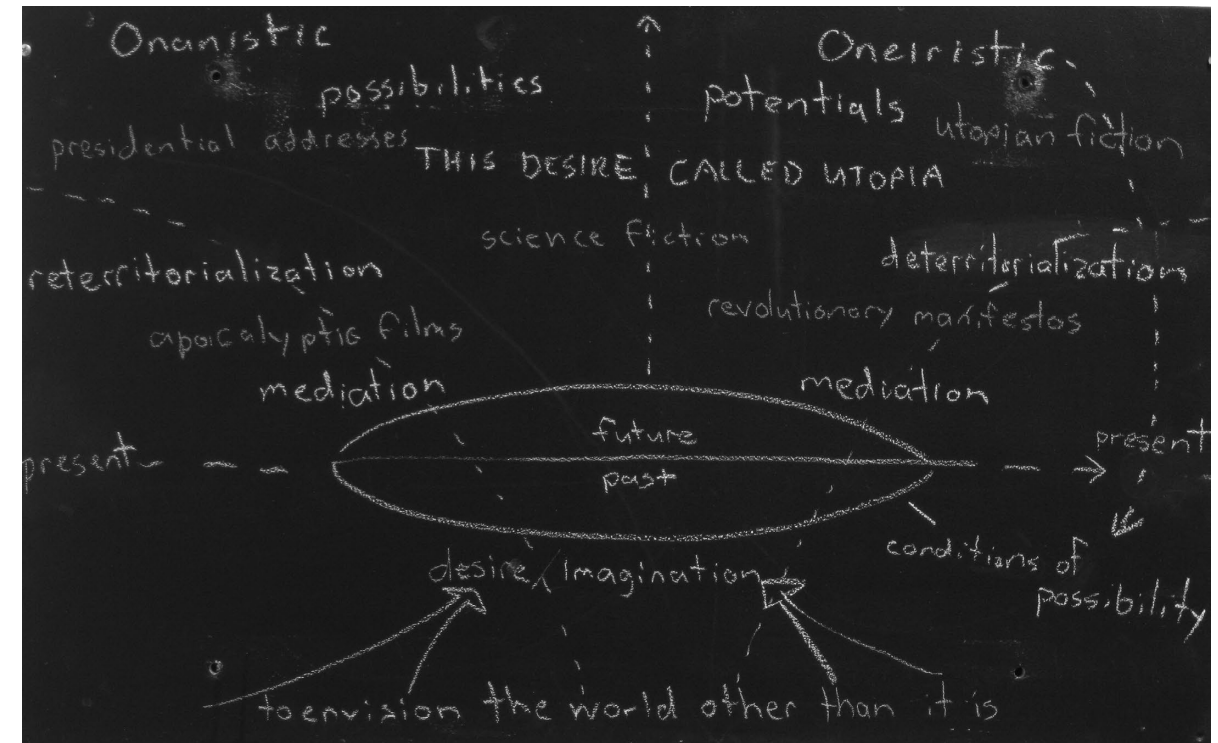 Onanistic
possibilities
presidential addresses
Oneiristic
potentials
utopian fiction
THIS DESIRE CALLED UTOPIA
science fiction
reterritorialization
deterritorialization
apocalyptic films
revolutionary manifestos
mediation
mediation
future
present
present
past
conditions of
possibility
desire/imagination
to envision the world other than it is